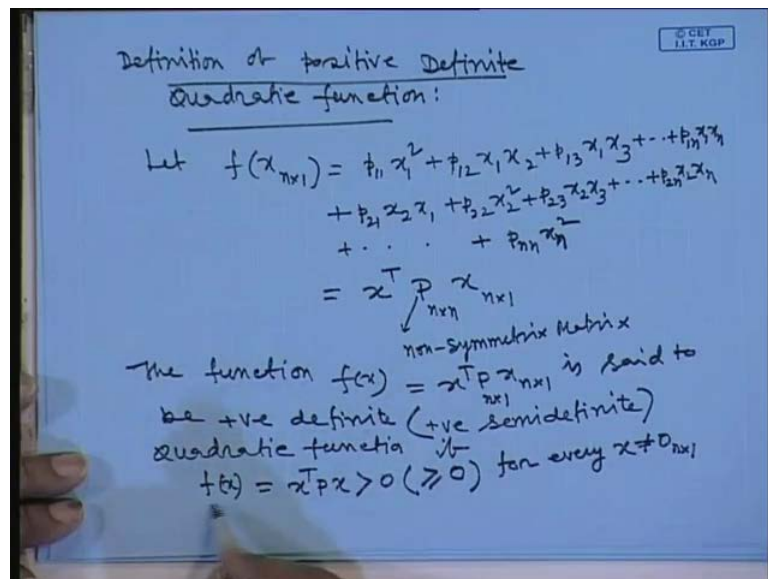 © CET
I.I.T. KGP
Definition of positive Definite
Quadratic function:
Let f(x_{n×1}) = p₁₁ x₁² + p₁₂ x₁ x₂ + p₁₃ x₁ x₃ + ·· + p₁ₙ x₁ xₙ
+ p₂₁ x₂ x₁ + p₂₂ x₂² + p₂₃ x₂ x₃ + ·· + p₂ₙ x₂ xₙ
+ · · · + pₙₙ xₙ²
= xᵀ P_{n×n} x_{n×1}
non-symmetrix Matrix
The function f(x) = xᵀ P_{n×1} x_{n×1} is said to
be +ve definite (+ve semidefinite)
Quadratic functio if
f(x) = xᵀPx > 0 (≥ 0) for every x ≠ 0_{n×1}